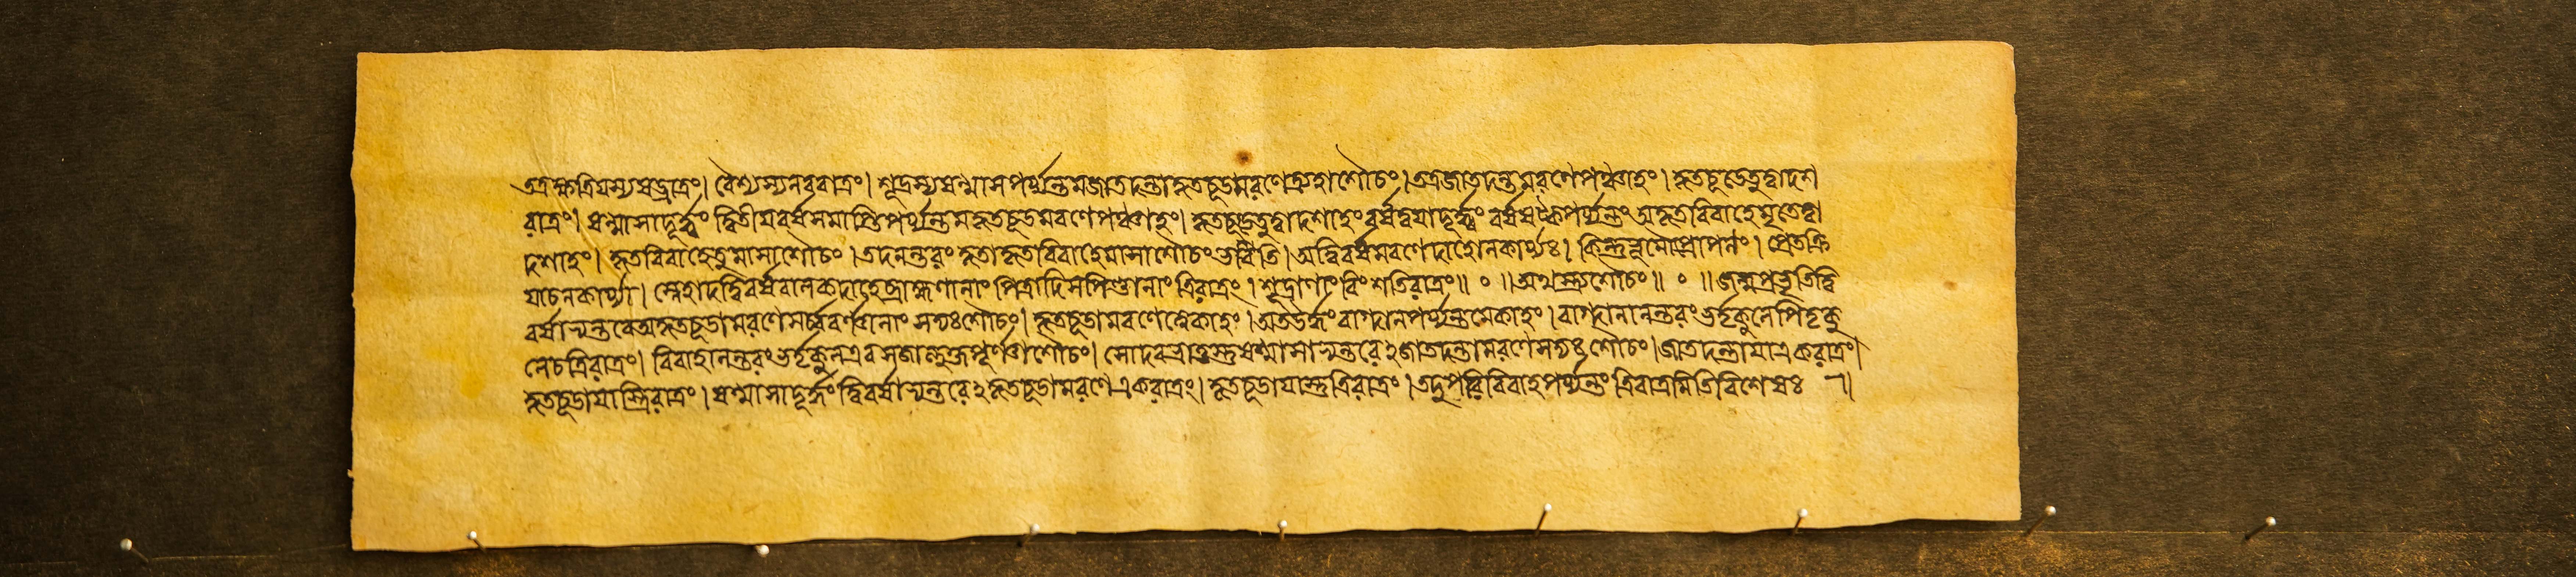 তত্রক্ষত্রিয়স্যষড্রাত্রং। বৈশ্যস্যনবরাত্রং। শূদ্রস্যষন্মাসপর্য্যন্তমজাতদন্তাকৃতচূড়মরণেত্র্যহাশৌচং। তত্রজাতদন্তমরণেপঞ্চাহং। কৃতচূড়েতুদ্বাদশ
রাত্রং। ষন্মাসাদূর্দ্ধ্বং দ্বিতীয়বর্ষসমাপ্তিপর্য্যন্তমকৃতচূড়মরণেপঞ্চাহং। কৃতচূড়েতুদ্বাদশাহং বর্ষদ্বয়াদূর্দ্ধ্বং বর্ষষট্কপর্য্যন্তং অকৃতবিবাহেমৃতেদ্বা
দশাহং। কৃতবিবাহেতুমাসাশৌচং। তদনন্তরং কৃতাকৃতবিবাহেমাসাশৌচংভবতি। অদ্বিবর্ষমরণেদাহোনকার্য্যঃ। কিন্তুভূমৌপ্রোথনং। প্রেতক্রি
য়াচনকার্য্যা। স্নেহাদদ্বিবর্ষবালকদাহেব্রাহ্মণানাং পিত্রাদিসপিণ্ডানাং ত্রিরাত্রং। শূদ্রাণাং বিংশতিরাত্রং॥ ॰ ॥ অথস্ত্র্যশৌচং॥ ॰ ॥ জন্মপ্রভৃতিদ্বি
বর্ষাভ্যন্তরেঅকৃতচূড়ামরণেসর্ব্ববর্ণানাং সদ্যঃশৌচং। কৃতচূড়ামরণেত্বেকাহং। অতঊর্দ্ধং বাগ্দানপর্য্যন্তমেকাহং। বাগ্দানানন্তরংভর্তৃকুলেপিতৃকু
লেচত্রিরাত্রং। বিবাহানন্তরংভর্তৃকুলএব সম্পূর্ণাশৌচং। সোদরভ্রাতুস্তুষণ্মাসাভ্যন্তরেঽজাতদন্তামরণেসদ্যঃশৌচং। জাতদন্তায়াএকরাত্রং।
কৃতচূড়ায়াস্ত্রিরাত্রং। ষণ্মাসাদূর্দ্ধং দ্বিবর্ষাভ্যন্তরেঽকৃতচূড়ামরণেএকরাত্রং। কৃতচূড়ায়াস্তুত্রিরাত্রং। তদুপরিবিবাহপর্য্যন্তং ত্রিরাত্রমিতিবিশেষঃ